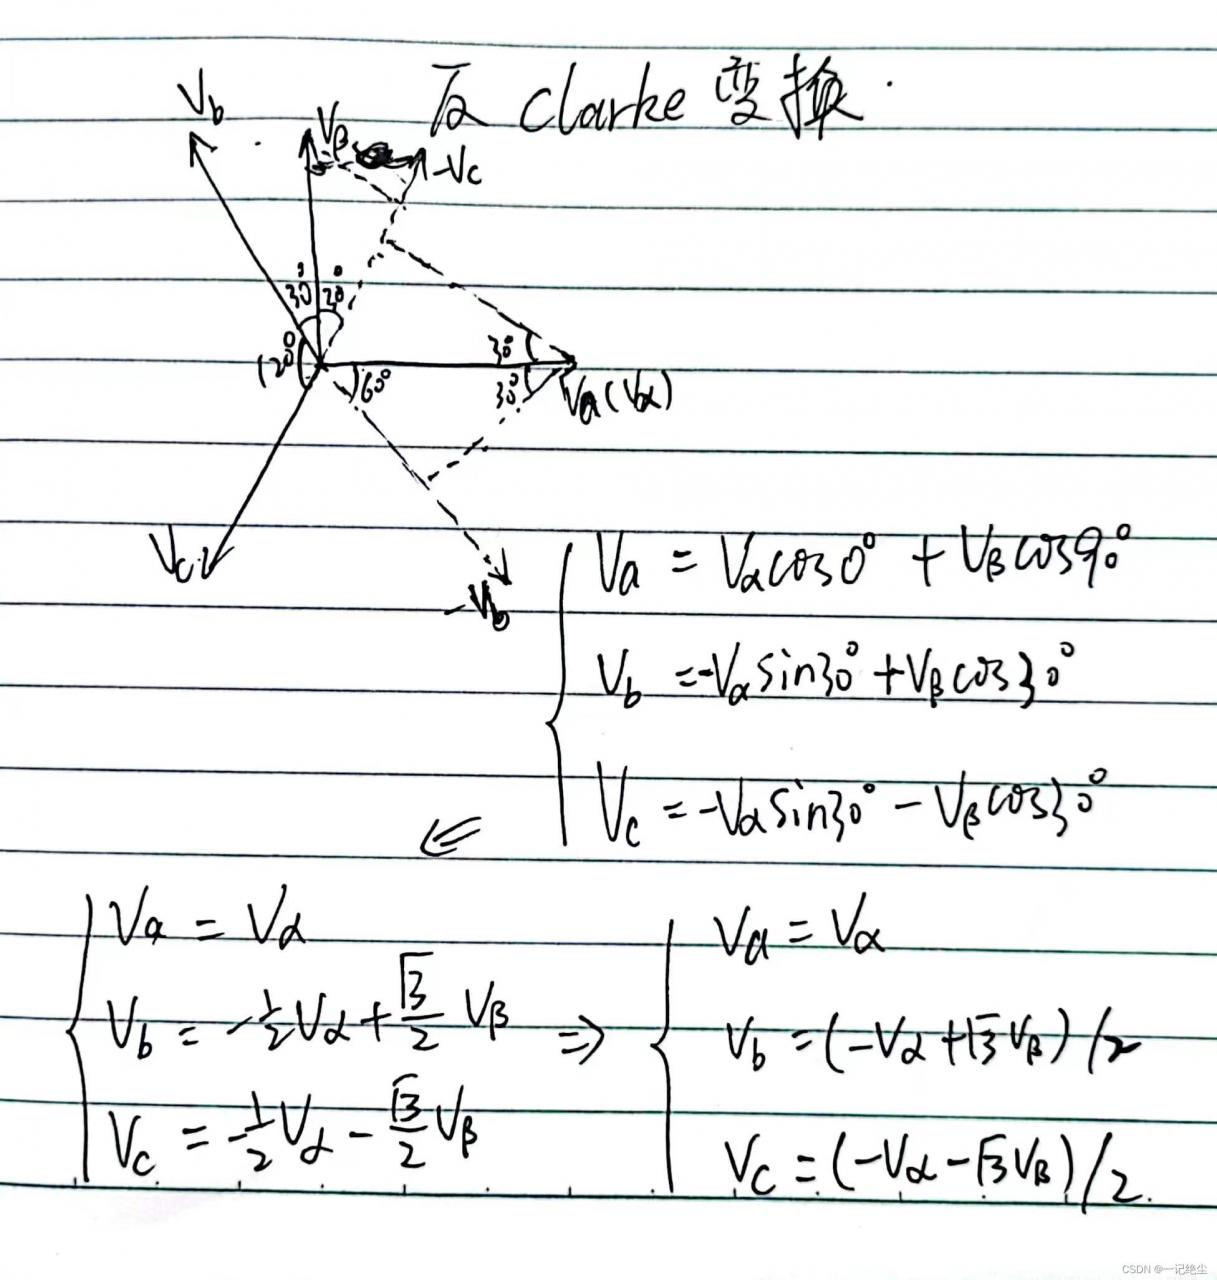 反 Clarke 变换
Vb
Vβ
-Vc
30° 30°
120°
60°
30°
30°
Va(Vα)
Vc
-Vb
Va = Vα cos0° + Vβ cos90°
Vb = -Vα sin30° + Vβ cos30°
Vc = -Vα sin30° - Vβ cos30°
⇐
Va = Vα
Vb = -1/2 Vα + √3/2 Vβ
Vc = -1/2 Vα - √3/2 Vβ
⇒
Va = Vα
Vb = (-Vα + √3 Vβ) / 2
Vc = (-Vα - √3 Vβ) / 2.
CSDN @一记绝尘